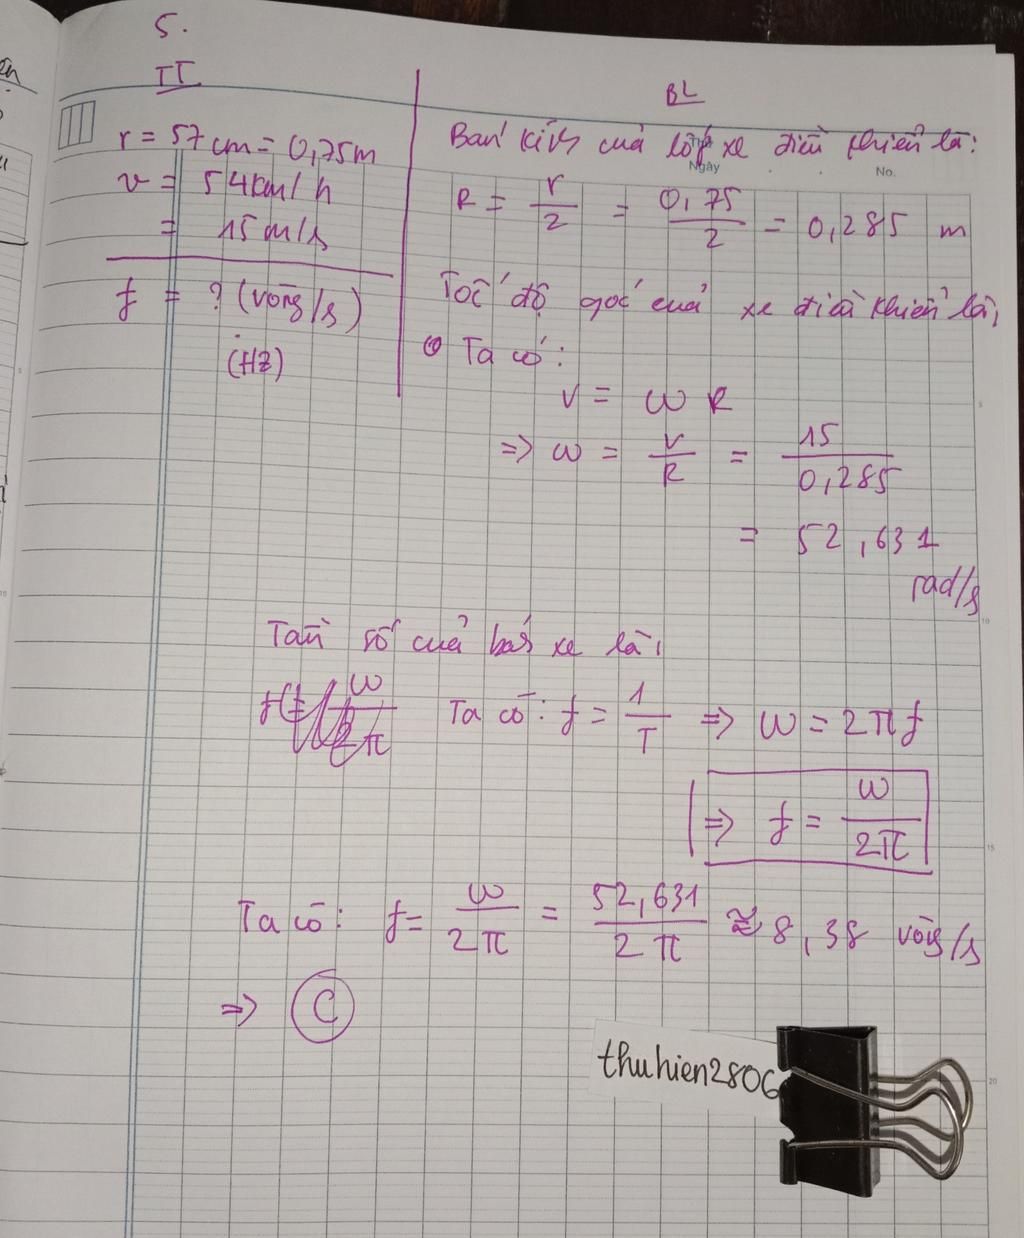 5.
TT
r = 57 cm = 0,75m
v = 54km/h
= 15 m/s
f = ? (vòng/s)
(HZ)
BL
Bán kính của lốp xe điều khiển là:
Ngày
No.
R = r/2 = 0,75/2 = 0,285 m
Tốc độ góc của xe điều khiển là,
Ta có:
v = ω R
=> ω = v/R = 15/0,285
= 52,631
rad/s
Tần số của bánh xe là,
Ta có: f = 1/T => ω = 2πf
=> f = ω/2π
Ta có: f = ω/2π = 52,631/2π ≈ 8,38 vòng/s
=> C
thuhien2806